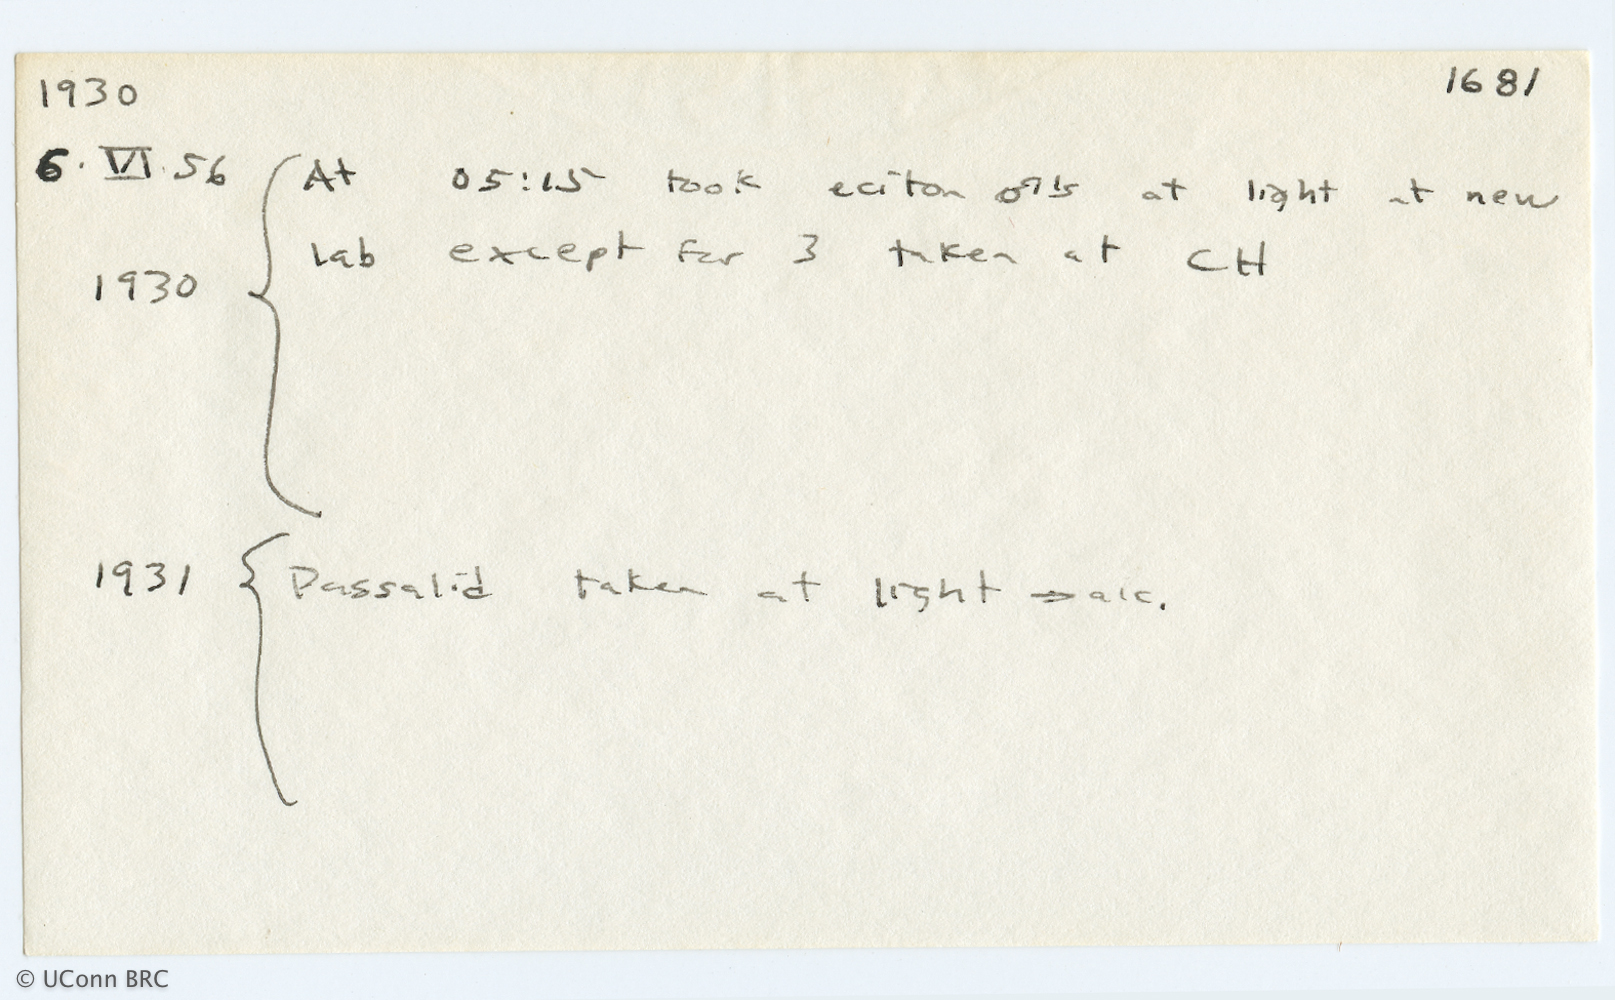 1930 1681
6. VI. 56 At 05:15 took eciton ♂'s at light at new
lab except for 3 taken at CH
1930
1931 Passalid taken at light → alc.
© UConn BRC